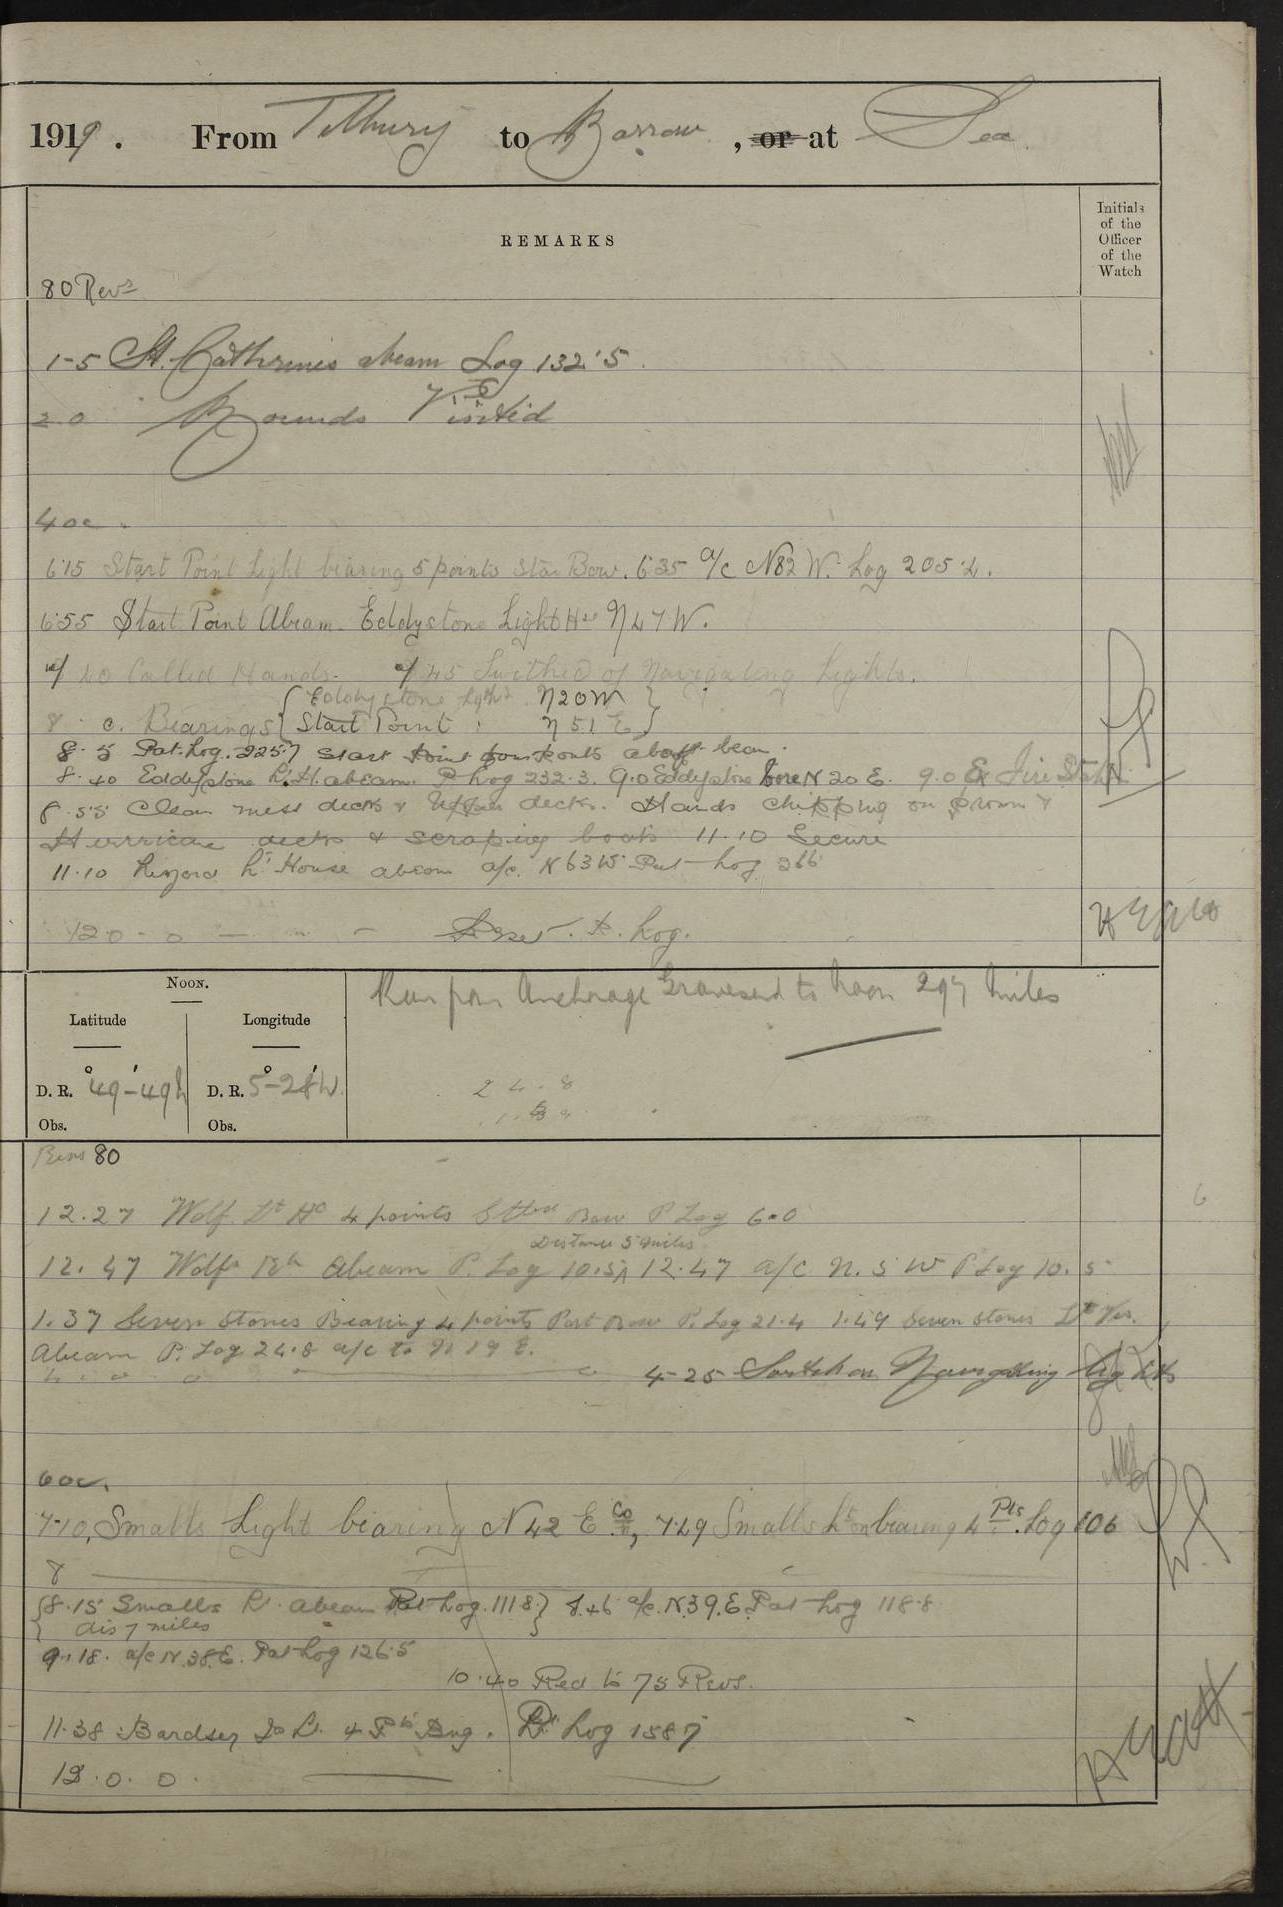 1919. From Tilbury to Barrow, or at Sea
REMARKS
Initials of the Officer of the Watch
80 Revs
1-5 St. Cathrines abeam Log 132'5.
2.0 Rounds Visited
4 oc.
6.15 Start Point Light bearing 5 points Star Bow. 6.35 a/c N82 W. Log 205.2.
6.55 Start Point Abeam. Eddystone Light Hse N47W.
Called Hands. Switched off Navigating Lights.
Eddystone Light N20W
8 c. Bearings Start Point : N 51 E
8.5 Pat. Log. 225.7 Start Point four points abaft beam.
8.40 Eddystone Lt. H. abeam P Log 232.3. 9.0 Eddystone bore N 20 E. 9.0 Ex Fire Statn.
8.55 Clean mess decks & Upper decks. Hands chipping on prom &
Hurricane decks & scraping boats 11.10 Secure
11.10 Lizard Lt House abeam a/c. N 63 W Pat Log 266
12.0.0 — — Reset P. Log.
NOON.
Run from Anchorage Gravesend to Noon 297 miles
Latitude Longitude
D. R. 49-49N D. R. 5-28W.
24.8
Obs. Obs.
Revs 80
12.27 Wolf Lt Ho 4 points Stbd Bow P Log 6.0
Distance 5 miles
12.47 Wolf Abeam P. Log 10.5 12.47 a/c N. 5 W P Log 10.5
1.37 Seven Stones Bearing 4 points Port Bow P. Log 21.4 1.49 Seven Stones Lt Ves.
Abeam P. Log 24.8 a/c to N 19 E.
4.0.0 4-25 Switch on Navigating Lts
6 oc.
7.10, Smalls Light bearing N 42 E Co, 7.29 Smalls Lt on bearing 4 Pts. Log 106
8
8.15 Smalls Lt. abeam Pat Log. 111 8 8.46 a/c. N.39.E. Pat Log 118.8
dis 7 miles
9.18. a/c N.38.E. Pat Log 126.5
10.40 Red to 75 Revs.
11.38 Bardsey Is Lt. 4 Pts Brg. Pt Log 158 7
12.0.0.